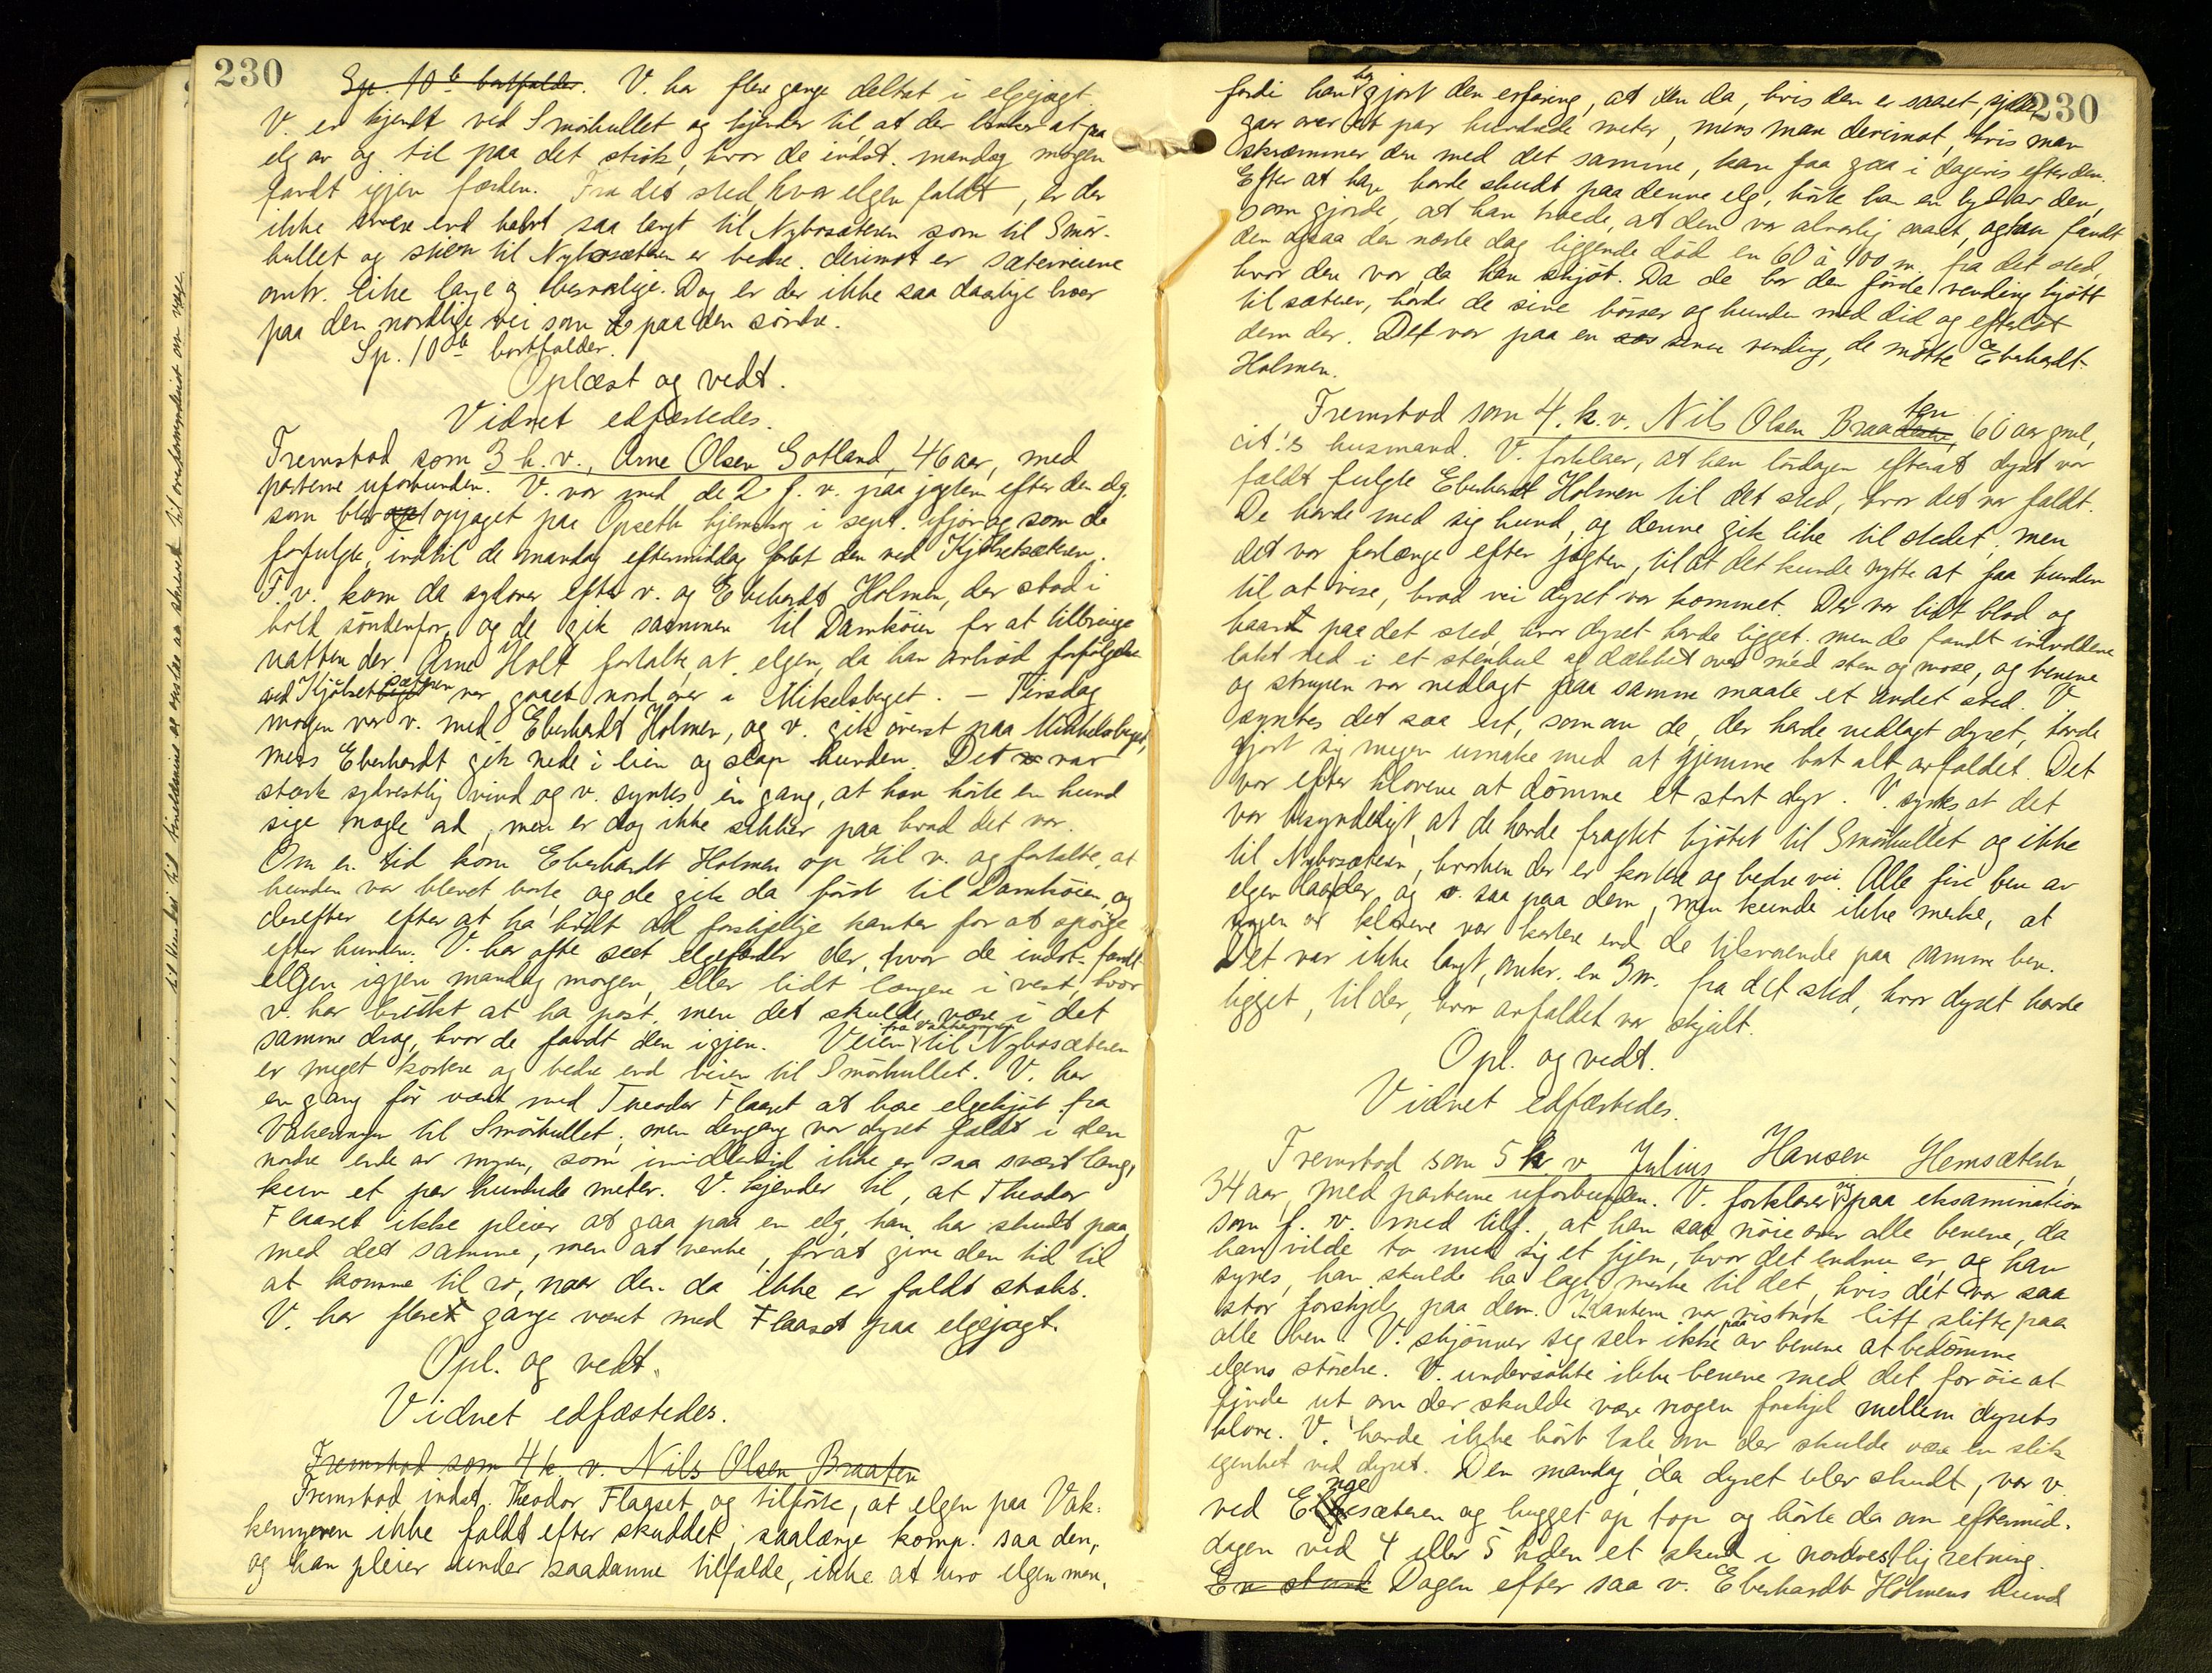 230
Sp. 10 b bortfalder. V. har flere gange deltat i elgejagt.
V. er kjendt ved Smörhullet og kjender til, at der bruker at gaa
elg av og til paa det strök, hvor de indst. mandag morgen
fandt igjen færden. Fra det sted, hvor elgen faldt, er der
ikke mere end halvt saa langt til Nybosæteren som til Smör-
hullet og stien til Nybosæteren er bedre. derimot er sæterveiene
omtr. like lange og besværlige. Dog er der ikke saa daarlige broer
paa den nordlige vei som paa den söndre.
Sp. 10 b bortfalder.
Oplæst og vedt.
Vidnet edfæstedes.
Fremstod som 3 k. v., Arne Olsen Gotland, 46 aar, med
parterne uforbunden. V. var med de 2 f. v. paa jagten efter den elg,
som blev opjaget paa Opseth hjemskog i sept. ifjor og som de
forfulgte, indtil de mandag eftermiddag forlot den ved Kjölsetsæteren.
F. v. kom da sydover efter v. og Eberhardt Holmen, der stod i
hold söndenfor, og de gik sammen til Damköien for at tilbringe
natten der. Arne Holt fortalte, at elgen, da han avbröd forfölgelsen
ved Kjölsetsæteren var gaaet nord over i Mikelsberget. — Tirsdag
morgen var v. med Eberhardt Holmen, og v. gik överst paa Mikkelsberget,
mens Eberhardt gik nede i lien og slap hunden. Det var
stærk sydvestlig vind og v. syntes én gang, at han hörte en hund
sige nogle ord, men er dog ikke sikker paa hvad det var.
Om en tid kom Eberhardt Holmen op til v. og fortalte, at
hunden var blevet borte, og de gik da först til Damköien, og
derefter efter at ha hvilt til forskjellige kanter for at spörge
efter hunden. V. har ofte seet elgefærder der, hvor de indst. fandt
elgen igjen mandag morgen, eller lidt længere i vest, hvor
v. har brukt at ha post, men det skulde være i det
samme drag, hvor de fandt den igjen. Veien fra Vakkermyren til Nybosæteren
er meget kortere og bedre end veien til Smörhullet. V. har
en gang för været med Theodor Flaaset at bære elgekjöt fra
Vakermyren til Smörhullet; men dengang var dyret faldt i den
nedre ende av myren, som imidlertid ikke er saa svært lang,
kun et par hundrede meter. V. kjender til, at Theodor
Flaaset ikke pleier at gaa paa en elg, han har skudt paa
med det samme, men at vente, for at give den tid til
at komme til ro, naar den da ikke er faldt straks.
V. har flere gange været med Flaaset paa elgejagt.
Opl. og vedt.
Vidnet edfæstedes.
Fremstod som 4 k. v. Nils Olsen Braaten
Fremstod indst. Theodor Flaaset og tilförte, at elgen paa Vak-
kermyren ikke faldt efter skuddet, saalænge komp. saa den,
og han pleier under saadanne tilfælde, ikke at uro elgen mere,
230
fordi han har gjort den erfaring, at den da, hvis den er saaret,
gaar over et par hundrede meter, mens man derimot, hvis man
skræmmer den med det samme, kan faa gaa i dagevis efter den.
Efter at han hadde skudt paa denne elg, hörte han en lyd av den,
som gjorde, at han troede, at den var alvorlig saaret, og han fandt
den ogsaa den næste dag liggende död en 60 à 100 m. fra det sted,
hvor den var, da han skjöt. Da de bar den förste vending kjött
til sæteren, havde de sine börser og hunden med did og efterlot
dem der. Det var paa en senere vending, de mötte Eberhardt
Holmen.
Fremstod som 4. k. v. Nils Olsen Braaten, 60 aar gml,
cit.'s husmand. V. forklarer, at han lördagen efterat dyret var
faldt fulgte Eberhardt Holmen til det sted, hvor det var faldt.
De havde med sig hund, og denne gik like til stedet; men
det var forlænge efter jagten, til at det kunde nytte at faa hunden
til at vise, hvad vei dyret var kommet. Der var lidt blod og
haar paa det sted, hvor dyret havde ligget. men de fandt indvoldene
lakt ned i et stenhul og dækket over med sten og mose, og benene
og strupen var nedlagt paa samme maate et andet sted. V.
syntes det saa ut, som om de, der havde nedlagt dyret, havde
gjort sig megen umake med at gjemme bort alt avfaldet. Det
var efter klovene at dömme et stort dyr. V. synes at det
var besynderligt, at de havde fragtet kjötet til Smörhullet og ikke
til Nybosæteren, hvorhen der er kortere og bedre vei. Alle fire ben av
elgen laa der, og v. saa paa dem, men kunde ikke merke, at
nogen av klovene var kortere end de tilsvarende paa samme ben.
Det var ikke langt, omtr. en 3 m. fra det sted, hvor dyret havde
ligget, til der, hvor avfaldet var skjult.
Opl. og vedt.
Vidnet edfæstedes.
Fremstod som 5 k v Julius Hansen Hemsæteren,
34 aar, med parterne uforbunden. V. forklarer og paa eksamination
som f. v. med tilf., at han saa nöie over alle benene, da
han vilde ta med sig et hjem, hvor det endnu er, og han
synes, han skulde ha lagt merke til det, hvis det var saa
stor forskjel paa dem. I kanten var vistnok litt slitte paa
alle ben. V. skjönner sig selv ikke paa av benene at bedömme
elgens störrelse. V. undersökte ikke benene med det for öie at
finde ut om der skulde være nogen forskjel mellem dyrets
klove. V. havde ikke hört tale om der skulde være en slik
egenhet ved dyret. Den mandag, da dyret blev skudt, var v.
ved sæteren og hugget op top og hörte da om eftermid-
dagen ved 4 eller 5 tiden et skud i nordvestlig retning.
En stund Dagen efter saa v. Eberhardt Holmens hund